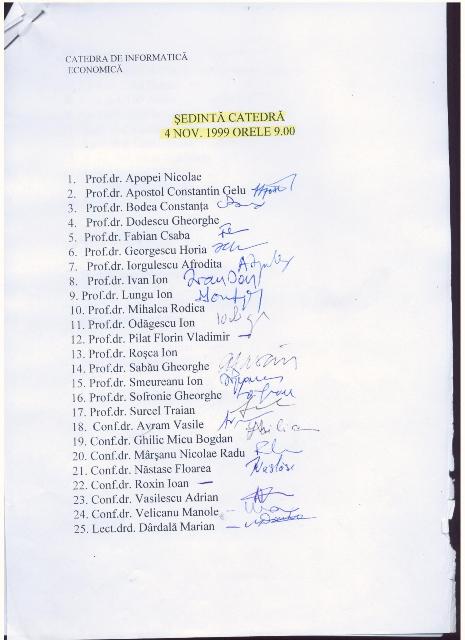 CATEDRA DE INFORMATICĂ
ECONOMICĂ
ŞEDINTĂ CATEDRĂ
4 NOV. 1999 ORELE 9.00
1. Prof.dr. Apopei Nicolae
2. Prof.dr. Apostol Constantin Gelu
3. Prof.dr. Bodea Constanţa
4. Prof.dr. Dodescu Gheorghe
5. Prof.dr. Fabian Csaba
6. Prof.dr. Georgescu Horia
7. Prof.dr. Iorgulescu Afrodita
8. Prof.dr. Ivan Ion
9. Prof.dr. Lungu Ion
10. Prof.dr. Mihalca Rodica
11. Prof.dr. Odăgescu Ion
12. Prof.dr. Pilat Florin Vladimir
13. Prof.dr. Roşca Ion
14. Prof.dr. Sabău Gheorghe
15. Prof.dr. Smeureanu Ion
16. Prof.dr. Sofronie Gheorghe
17. Prof.dr. Surcel Traian
18. Conf.dr. Avram Vasile
19. Conf.dr. Ghilic Micu Bogdan
20. Conf.dr. Mârşanu Nicolae Radu
21. Conf.dr. Năstase Floarea Nastase
22. Conf.dr. Roxin Ioan
23. Conf.dr. Vasilescu Adrian
24. Conf.dr. Velicanu Manole
25. Lect.drd. Dârdală Marian